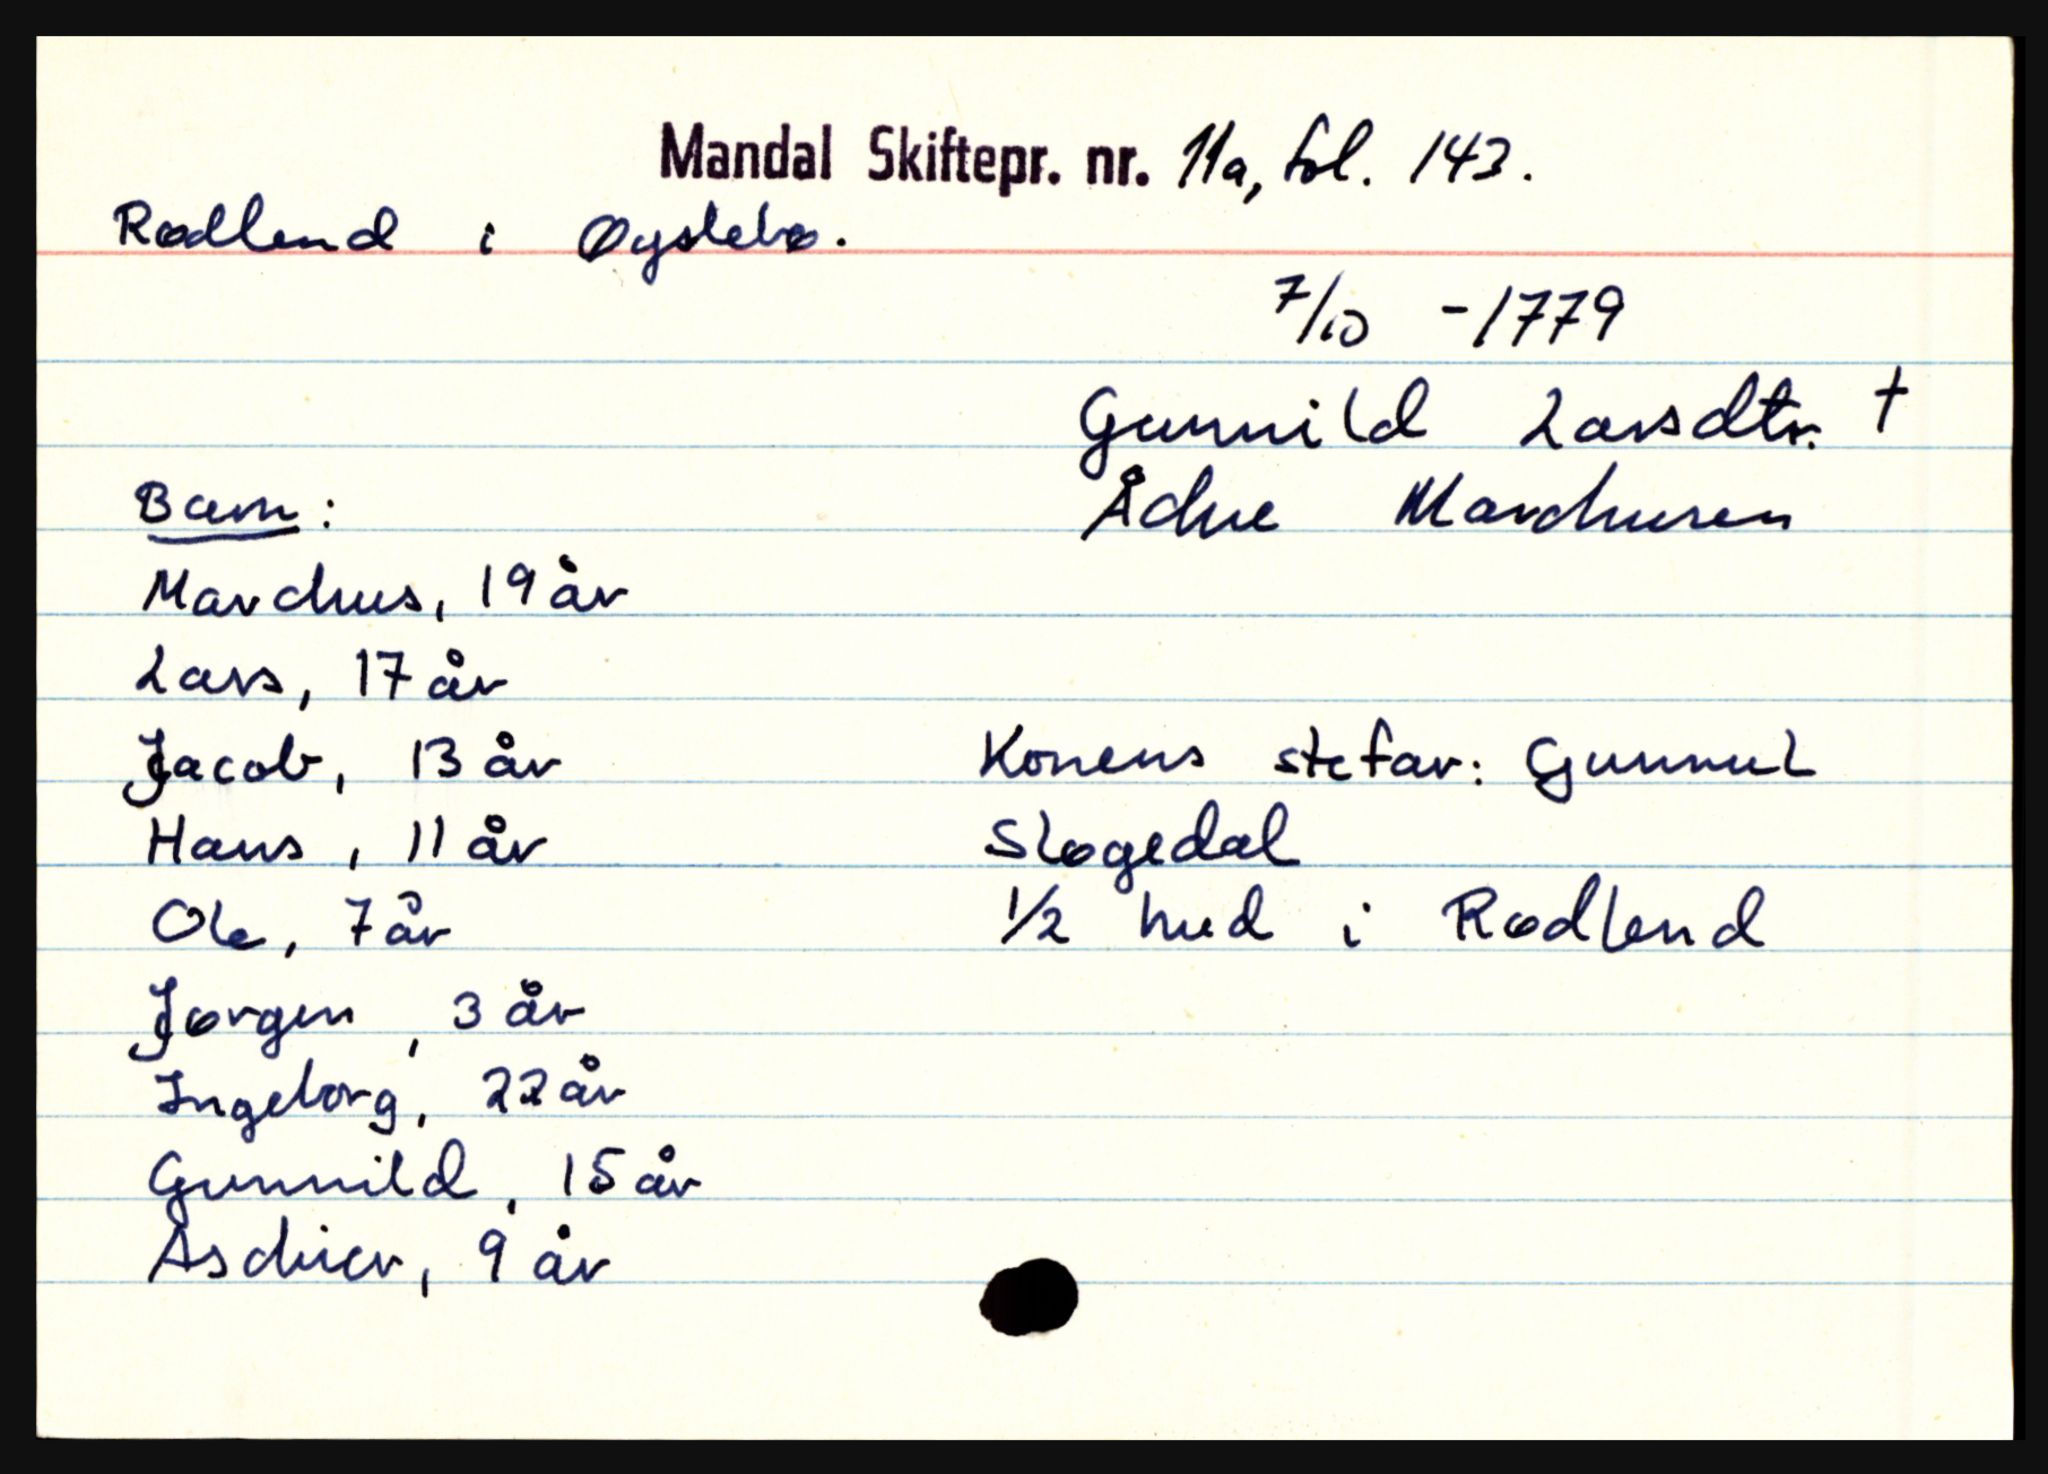 Mandal Skiftepr. nr. 11a, fol. 143.
Rødlend i Øyslebø.
7/10 - 1779
Gunnild Larsdtr. †
Barn:
Ådne Marchusen
Marchus, 19 år
Lars, 17 år
Jacob, 13 år
Konens stefar: Gunnul
Hans, 11 år
Sløgedal
Ole, 7 år
1/2 hud i Rødlend
Jørgen, 3 år
Ingeborg, 22 år
Gunnild, 15 år
Aschier, 9 år